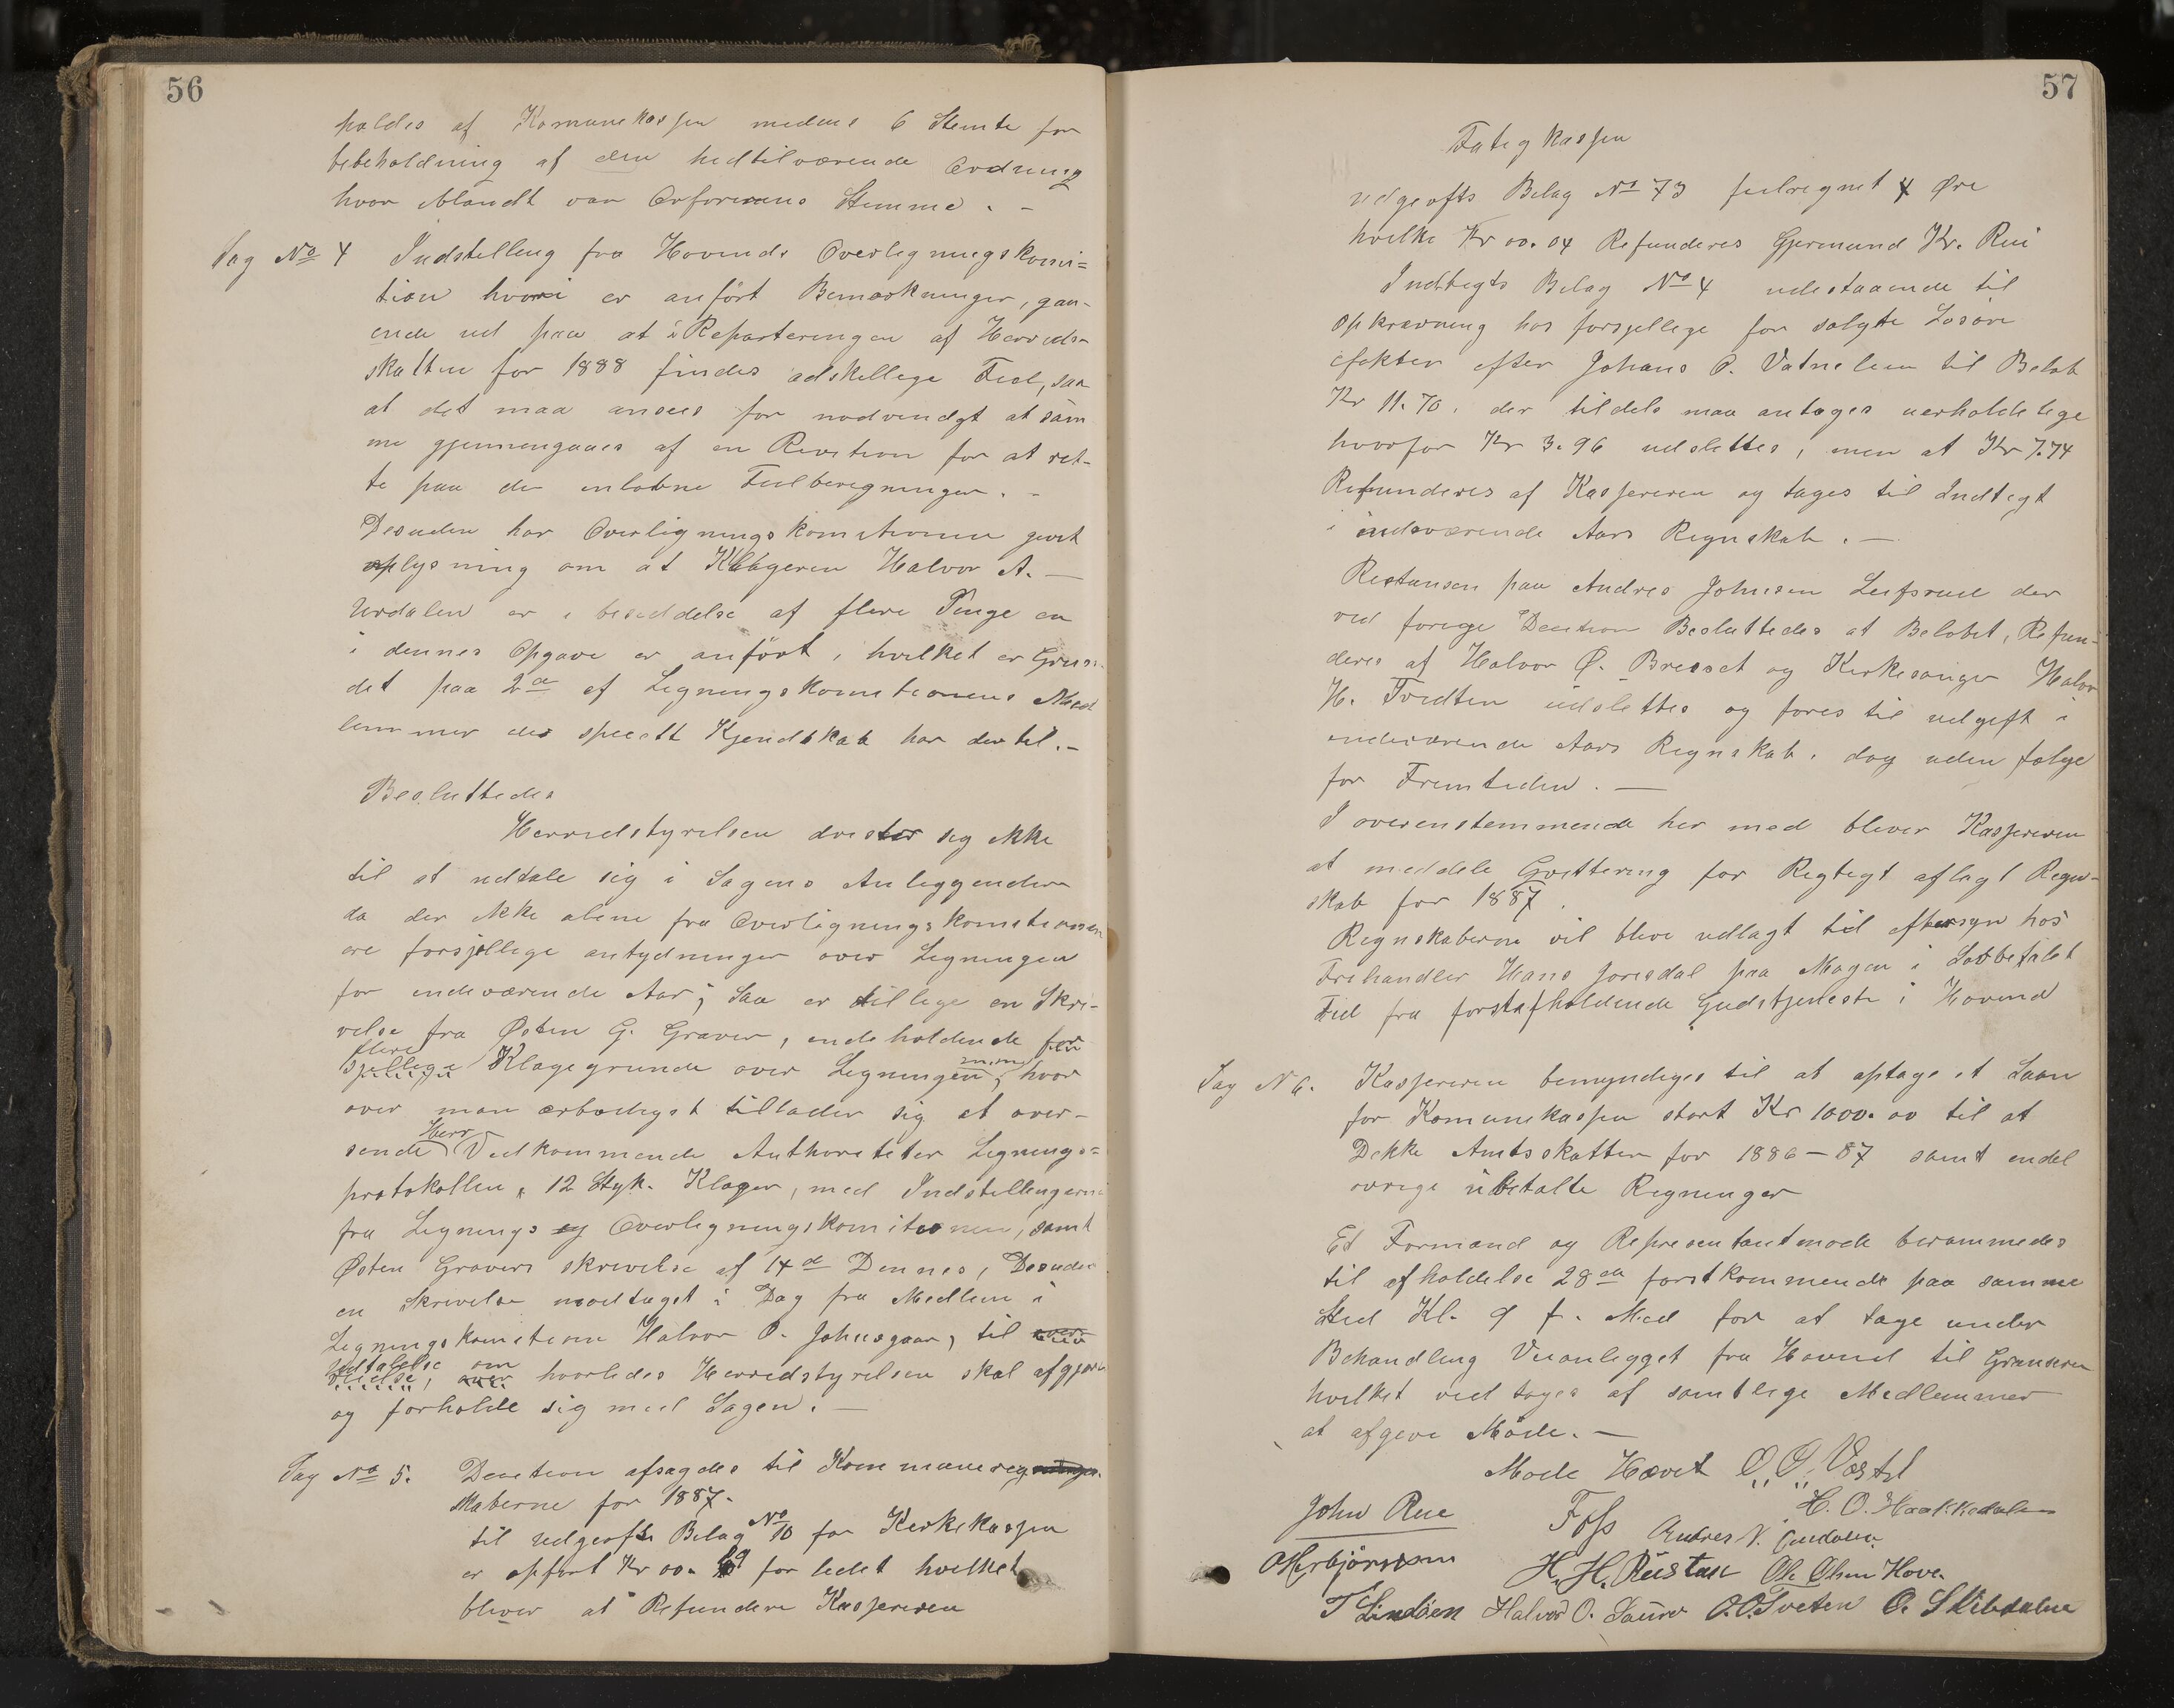 56
holdes af Komunekassen medens 6 Stemte for
bebeholdning af den hidtilværende Ordning
hvor iblandt var Orforerens Stemme. –
Sag No 4 Indstilling fra Hovinds Overligningskomi=
tion hvori er anført Bemærkninger, gaa-
ende ud paa at i Reparteringen af Herreds-
skatten for 1888 findes adskellige Feil, saa
at det maa ansees for nødvendgt at sam
me gjennemgaaes af en Revition for at ret-
te paa de inløbne Feilberegninger. –
Desuden har Overligningskomitionen givet
oplysning om at Klageren Halvor A. –
Urdalen er i besiddelse af flere Penge en
i dennes Opgave er anført, hvilket er Grun-
det paa 2de af Ligningskomitionens Med
lemmer der speielt Kjendskab har dertil. –
Besluttedes
Herredstyrelsen drister sig ikke
til at udtale sig i Sagens Anliggender
da der ikke alene fra Overligningskomitionen
ere forsjellige antydninger over Ligningen
for indeværende Aar; Saa er tillige en Skri-
velse fra Østen G. Graver, indeholdende for
flere
sjellige Klagegrunde over Ligningen, hvor
over man ærbødigst tillader sig at over-
Herr
sende Vedkommende Authoriteter Lignings=
protokollen, 12 Styk. Klager, med Indstillingerne
fra Lignings og Overligningskomitionen, samt
Østen Gravers skrivelse af 14de Dennes, Desuden
en Skrivelse modtaget i Dag fra Medlem i
Ligningskomitionen Halvor O. Johnsgaar, til
Udtalelse om
over hvorledes Herredstyrelsen skal afgjøre
og forholde sig med Sagen. –
Sag No 5. Decition afsagdes til Kommune
skaberne for 1887.
til udgeofts Bilag No 10 for Kirkekassen
er opført Kr 00. for lidet hvilket
bliver at Refundere Kassereren
57
Fatigkassen
udgeofts Bilag No 73 feilregnet 4 Øre
hvilke Kr 00.04 Refunderes Gjermund Kr. Rui
Indtegts Bilag No 4 udestaaende til
opkrævning hos forsjellige for solgte Losøre
efekter efter Johans O. Vatnelien til Beløb
Kr 11.70, der tildels maa antages uerholdelige
hvorfor Kr 3.96 udslettes, men at Kr 7.74
Refunderes af Kassereren og tages til Indtegt
i indeværende Aars Regnskab. –
Restansen paa Andres Johnsen Leifsrud der
ved forrige Decition Besluttedes at Beløbet, Refun-
deres af Halvor Ø. Bresset og Kirkesanger Halvor
H. Tvedten udslettes og føres til udgift i
indeværende Aars Regnskab. dog uden følge
for Fremtiden. –
I overenstemmende her med bliver Kassereren
at meddele Qvittering for Regtigt aflagt Regn-
skab for 1887.
Regnskaberne vil blive udlagt til eftersyn hos
Frihandler Hans Jorisdal paa Mogen i Lovbefalet
Tid fra førstafholdende Gudstjeneste i Hovind
Sag N 6. Kassereren bemyndiges til at optage et Laan
for Komunekassen stort Kr 1000.00 til at
Dekke Amtsskatten for 1886–87 samt endel
øvrige ubetalte Regninger
Et Formand og Representantmøde berammedes
til afholdelse 28de førstkommende paa samme
Sted Kl. 9 f. Med for at tage under
Behandling Veianlegget fra Hovind til Grænsen
hvilket vedtages af samtlige Medlemmer
at afgive Møde. –
Møde Hævet O. O. Væstl
John Rue Foss H. O. Haakkedalen
Andres N. Gjndalen
O Herbjørnsen H. H. Rustan Ole Olsen Hove.
T Lindøen Halvor O. Saure O.O. Tveten O. Skibdalen